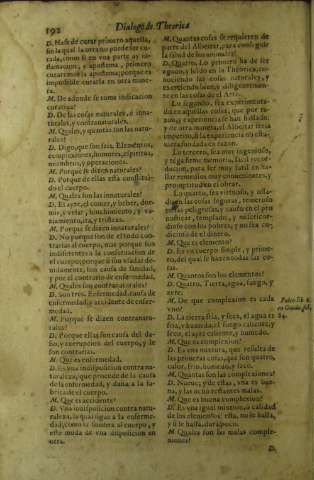 192
Dialogo de Theorica
D. Hase de curar primero aquella,
sin la qual la otra no puede ser cu-
rada, como si en vna parte ay in-
flamacion, y apostema, primero
curaremos la apostema, porque es
impossible curarla en otra mane-
ra.
M. De adonde se toma indicacion
curatiua?
D. De las cosas naturales, è inna-
turales, y contranaturales.
M. Quales, y quantas son las natu-
rales?
D. Digo, que son seis, Elementos,
complexiones, humores, espiritus,
miembros, y operaciones.
M. Porque se dizen naturales?
D. Porque de ellas està
do el cuerpo.
M. Quales son las innaturales?
D. El ayre, el comer, y beber, dor-
mir, y velar,
M. Porque se dizen innaturales?
D. No porque son de el todo con-
trarias al cuerpo, mas porque son
indiferentes a la conseruacion de
el cuerpo; porque si son vsadas de-
uidamente, son causa de sanidad,
y por el contrario de enfermedad.
M. Quales son contranaturales?
D. Son tres. Enfermedad, causa de
enfermedad, y accidente de enfer-
medad.
M. Porque se dizen contranatu-
rales?
D. Porque ellas son causa del da-
ño, y corrupcion del cuerpo, y le
son contrarias.
M. Que es enfermedad.
D. Es vna indisposicion contra na-
turaleza, que procede de la causa
de la enfermedad, y daña a la fa-
brica de el cuerpo.
M. Que es accidente?
D. Vna indisposicion contra natu-
raleza, la qual sigue a la enferme-
dad, como la sombra al cuerpo, y
este muda de vna disposicion en
otra.
M. Quantas cosas se requieren de
parte del Albeytar, para conseguir
la salud de los animales?
D. Quatro. Lo primero ha de ser
agudo, y habil en la Theorica, co-
nociendo las cosas naturales, y
exerciendo bien, y diligentemen-
te en las cosas de el Arte.
Lo segundo, sea experimenta-
do en aquellas cosas, que por ra-
zon, y experiencia se han hallado;
y de otra manera, el Albeytar seria
imperfecto, si la experiencia no estu-
uiera fundada en razon.
Lo tercero, sea muy ingenioso,
y tenga firme memoria, facil
para ser muy facil en ha-
llar remedios muy conuenientes, y
promptitud en el obrar.
Lo quarto, sea virtuoso, y osta-
do en las cosas seguras, temeroso
en las peligrosas, y cauto en el pro-
nosticar, templado, y misericor-
dioso con los pobres, y no sea co-
dicioso de el dinero.
M. Que es elemento?
D. Es vn cuerpo simple, y prime-
ro, del qual se hazen todas las co-
sas.
M. Quantos son los elementos?
D. Quatro. Tierra, agua, fuego, y
ayre.
M. De que complexion es cada
vno?
D. La tierra fria, y seca, el agua es
fria, y humeda, el fuego caliente, y
seco, el ayre caliente, y humedo.
M. Que es complexion?
D. Es vna mixtura, que resulta de
las primeras cosas, que son quatro,
calor, frio, humedo, y seco.
M. Quantas son las complexiones?
D. Nueue; y de ellas, vna es bue-
na, y las ocho restantes malas.
M. Que es buena complexion?
D. Es vna igual mixtion, ò calidad
de los elementos: ella, no se halla,
y si se halla, dura poco.
M. Quales son las malas comple-
xiones?
D.